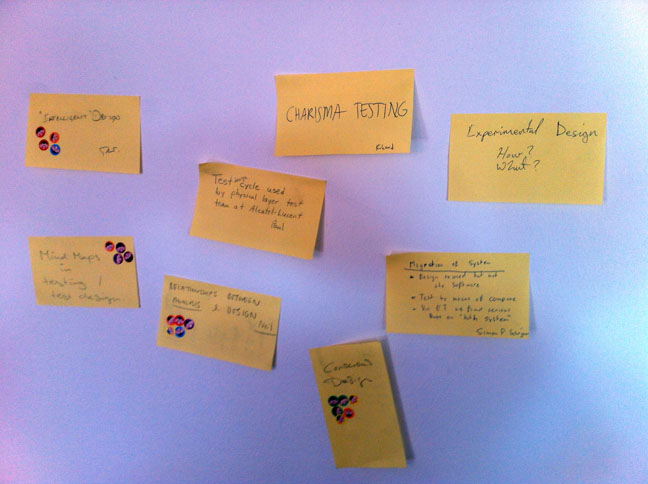 "INTELLIGENT" DESIGN
CHARISMA TESTING
Experimental Design
How?
What?
Testing
cycle used
by physical layer test
team at Alcatel-Lucent
Paul
Mind Maps
in
testing /
test design
RELATIONSHIPS BETWEEN
ANALYSIS & DESIGN
Neil
Migration of System
Design reused but not
the software
Test by means of compare
Via ET we find serious
Bugs on "both system"
Simon P.
Consensus
Design